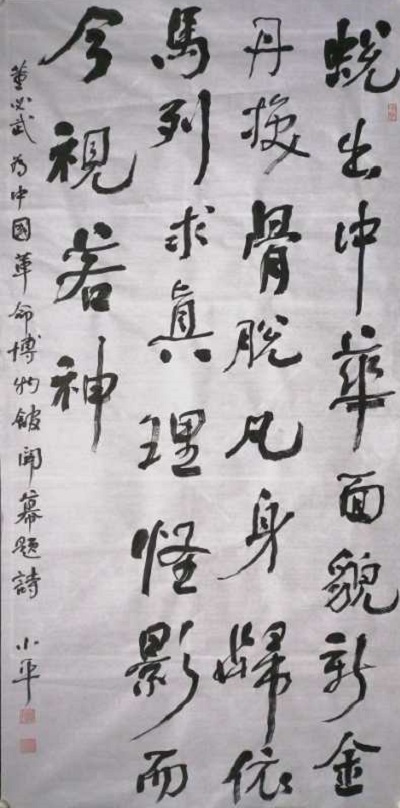 蜕出中華面貌新金
丹換骨脱凡身歸依
馬列求眞理怪影而
今視若神
董必武為中國革命博物館開幕題詩 小平